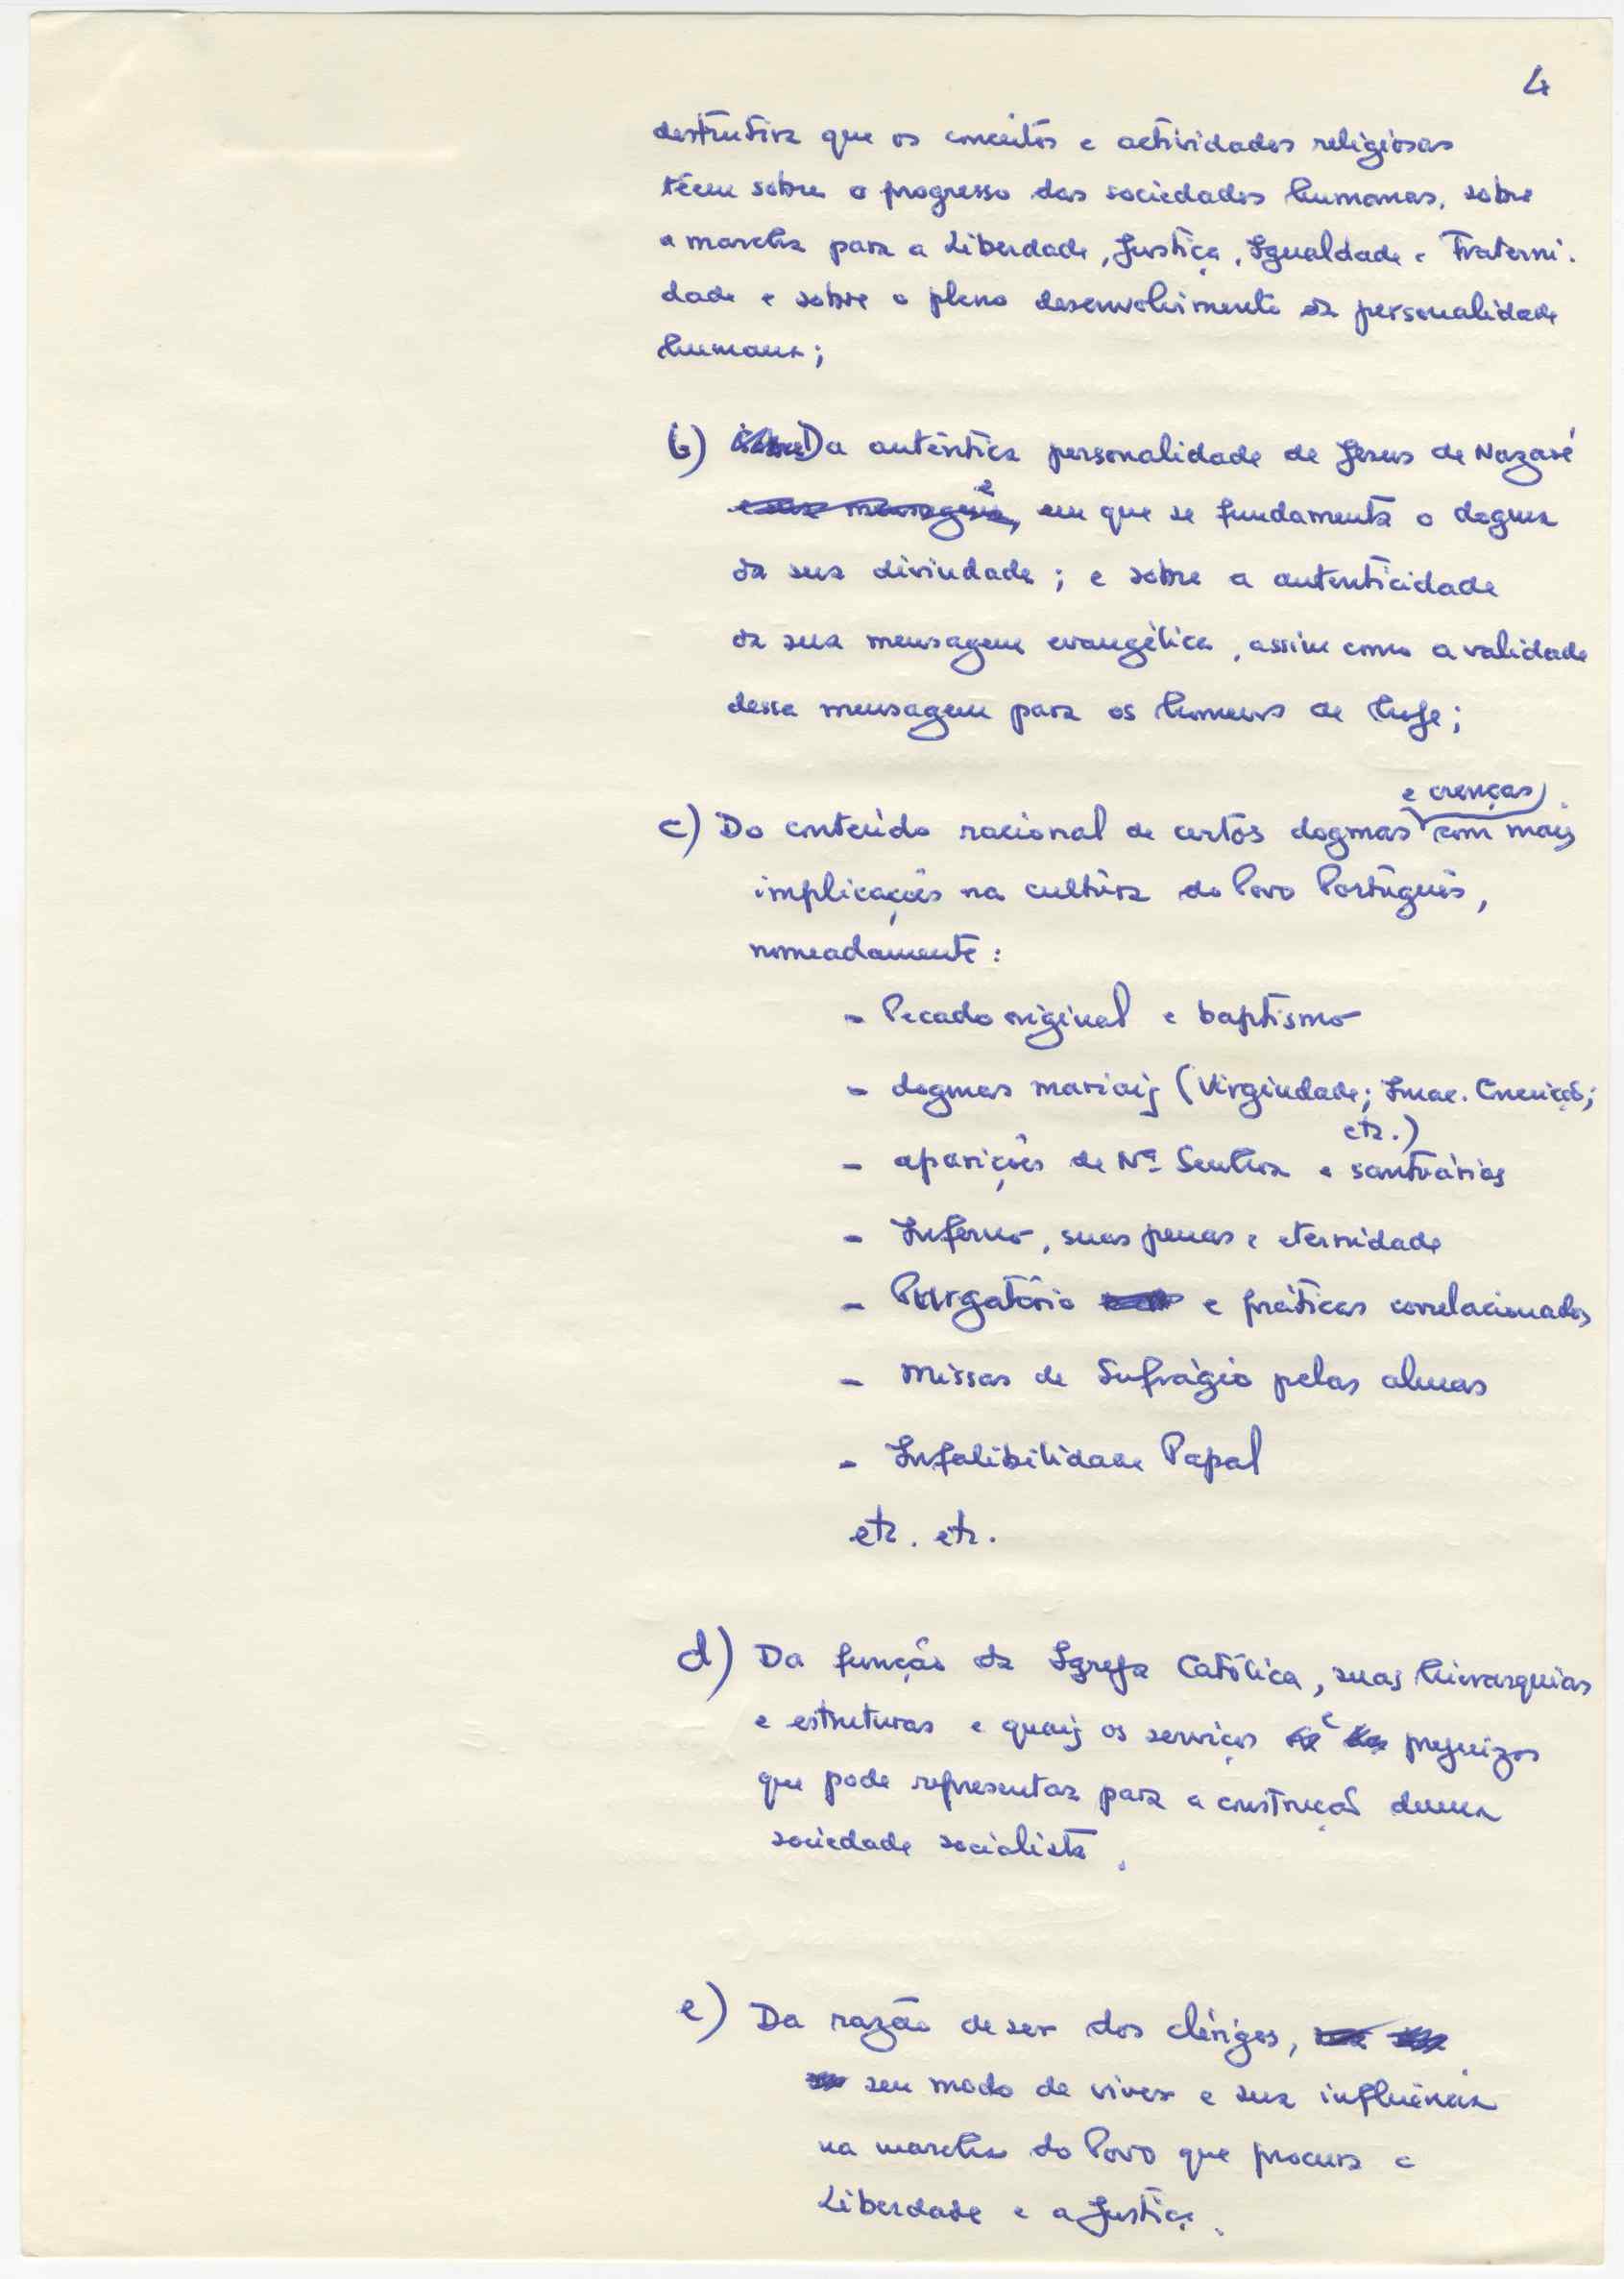 4
destrutiva que os conceitos e actividades religiosas
têem sobre o progresso das sociedades humanas, sobre
a marcha para a Liberdade, Justiça, Igualdade e Fraterni-
dade e sobre o pleno desenvolvimento da personalidade
humana;
b) Da autêntica personalidade de Jesus de Nazaré
e
e sua mensagem, em que se fundamenta o dogma
da sua divindade; e sobre a autenticidade
da sua mensagem evangélica, assim como a validade
dessa mensagem para os homens de hoje;
e crenças
c) Do conteúdo racional de certos dogmas com mais
implicações na cultura do Povo Português,
nomeadamente:
- Pecado original e baptismo
- dogmas mariais (Virgindade; Imac. Conceição;
etc.)
- aparições de Nª Senhora e santuários
- Inferno, suas penas e eternidade
- Purgatório e práticas correlacionadas
- Missas de Sufrágio pelas almas
- Infalibilidade Papal
etc. etc.
d) Da função da Igreja Católica, suas hierarquias
e estruturas e quais os serviços e prejuizos
que pode representar para a construção duma
sociedade socialista.
e) Da razão de ser dos clérigos,
seu modo de viver e sua influência
na marcha do Povo que procura a
Liberdade e a Justiça.